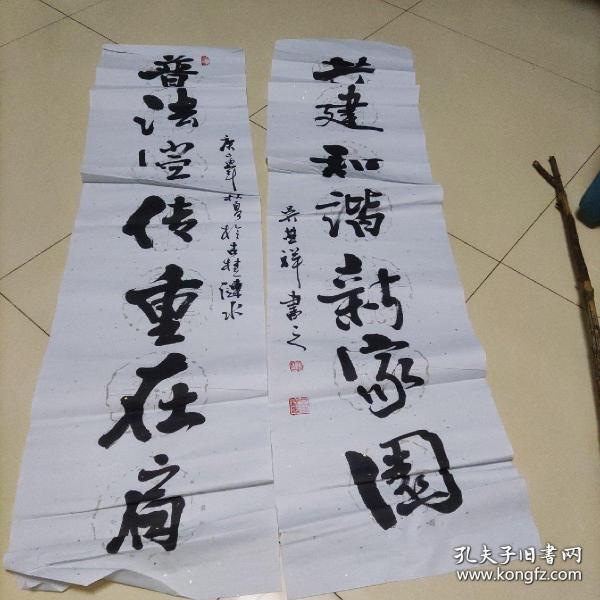 普法宣传重在肩
共建和谐新家园
吴其祥书之
孔夫子旧書网
www.kongfz.com